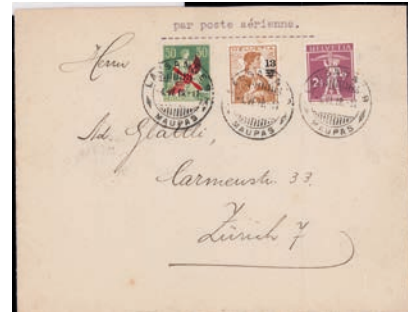 par poste aérienne.
Herrn
50 50
HELVETIA 13
HELVETIA 2½
LAUSANNE
MAUPAS
MAUPAS
MAUPAS
Ad. Glättli,
Carmenstr. 33.
Zürich 7